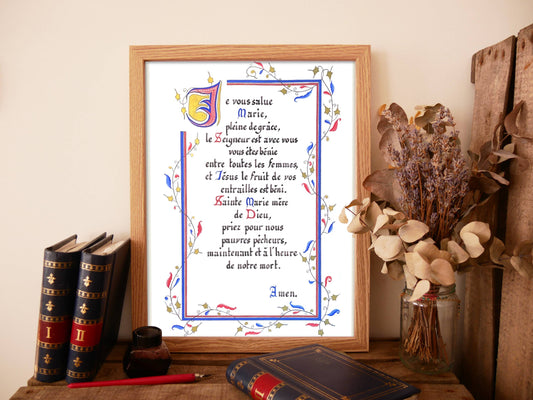 Je vous salue
Marie,
pleine de grâce,
le Seigneur est avec vous
vous êtes bénie
entre toutes les femmes,
et Jésus le fruit de vos
entrailles est béni.
Sainte Marie mère
de Dieu,
priez pour nous
pauvres pécheurs,
maintenant et à l'heure
de notre mort.
Amen.
I
II